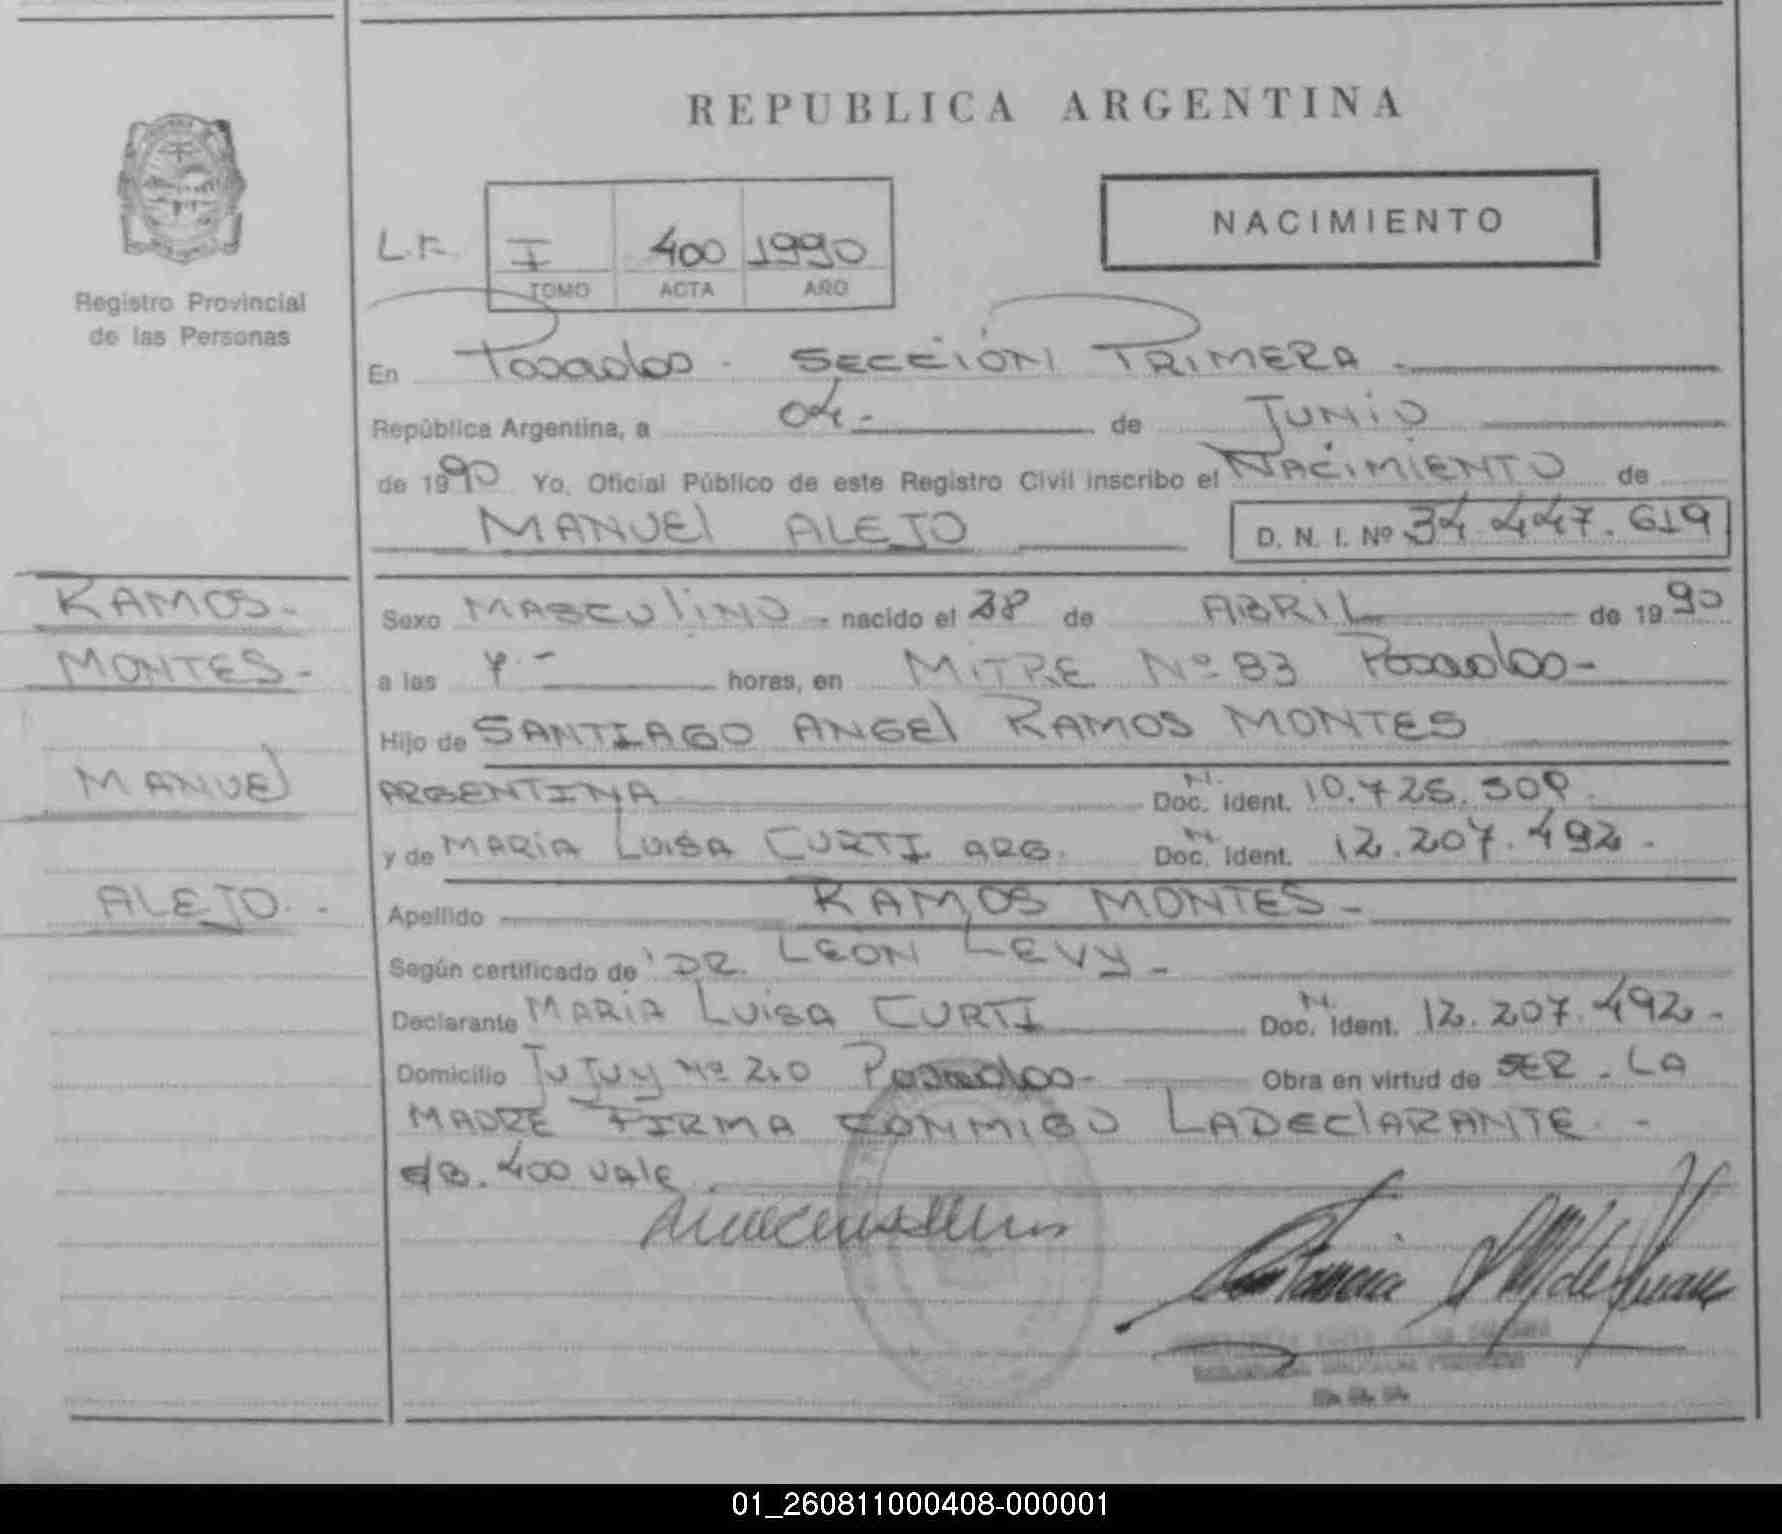 REPUBLICA ARGENTINA
NACIMIENTO
L.F. I 400 1990
TOMO ACTA AÑO
Registro Provincial
de las Personas
En Posadas - SECCIÓN PRIMERA
República Argentina, a 04 - de JUNIO
de 1990 Yo, Oficial Público de este Registro Civil inscribo el NACIMIENTO de
MANUEL ALEJO D. N. I. Nº 34.447.619
RAMOS -
MONTES -
MANUEL
ALEJO -
Sexo MASCULINO - nacido el 28 de ABRIL de 1990
a las 4 - horas, en MITRE Nº 83 Posadas -
Hijo de SANTIAGO ANGEL RAMOS MONTES
ARGENTINA N. Doc. Ident. 10.726.
y de MARIA LUISA CURTI ARG. N. Doc. Ident. 12.207.492 -
Apellido RAMOS MONTES -
Según certificado de DR. LEON LEVY -
Declarante MARIA LUISA CURTI N. Doc. Ident. 12.207.492 -
Domicilio JUJUY Nº 210 Posadas - Obra en virtud de SER - LA
MADRE FIRMA CONMIGO LA DECLARANTE. -
400 VALE
01_260811000408-000001